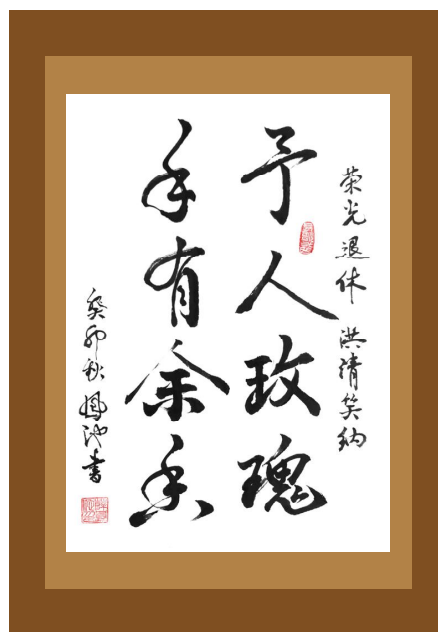 荣光退休 洪清笑纳
予人玫瑰
手有余香
癸卯秋 凤池书